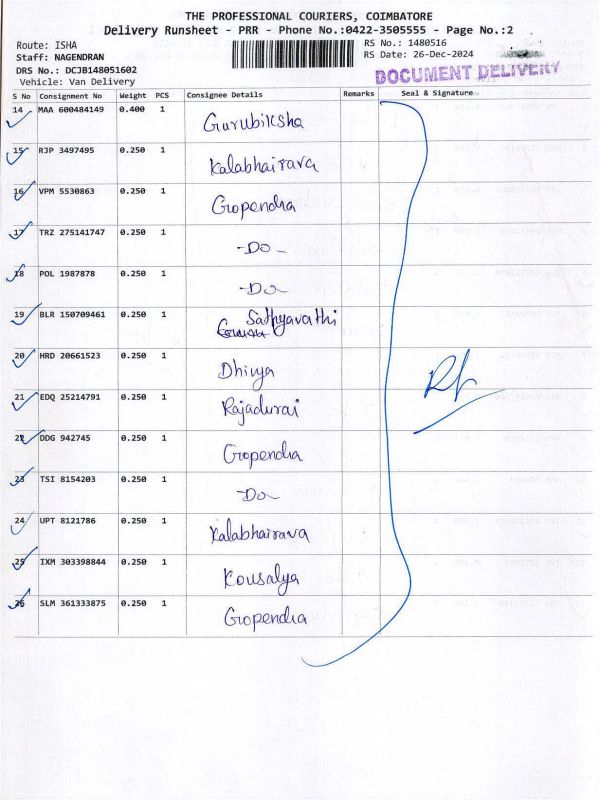 THE PROFESSIONAL COURIERS, COIMBATORE
Delivery Runsheet - PRR - Phone No.:0422-3505555 - Page No.:2
Route: ISHA
RS No.: 1480516
Staff: NAGENDRAN
RS Date: 26-Dec-2024
DRS No.: DCJB148051602
DOCUMENT DELIVERY
Vehicle: Van Delivery
S No Consignment No Weight PCS Consignee Details Remarks Seal & Signature
14 MAA 600484149 0.400 1 Gurubiksha
15 RJP 3497495 0.250 1 Kalabhairava
16 VPM 5530863 0.250 1 Gopendra
17 TRZ 275141747 0.250 1 -Do-
18 POL 1987878 0.250 1 -Do-
19 BLR 150709461 0.250 1 Sathyavathi
20 HRD 20661523 0.250 1 Dhivya
21 EDQ 25214791 0.250 1 Rajadurai
22 DDG 942745 0.250 1 Gopendra
23 TSI 8154203 0.250 1 -Do-
24 UPT 8121786 0.250 1 Kalabhairava
25 IXM 303398844 0.250 1 Kousalya
26 SLM 361333875 0.250 1 Gopendra